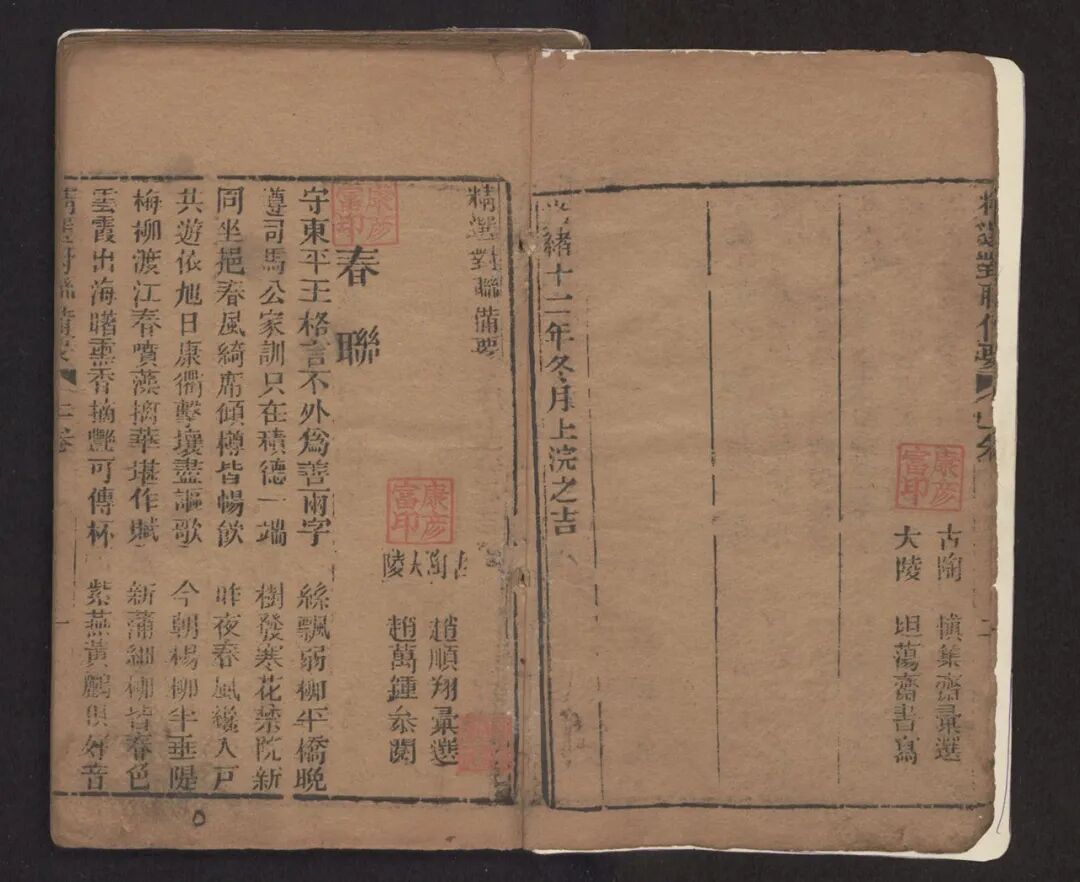 精選對聯備要
古陶 慎集齋彙選
大陵 坦蕩齋書寫
康彦富印
緒十二年冬月上浣之吉
精選對聯備要
古陶 趙順翔彙選
大陵 趙萬鍾叅閱
康彦富印
春聯
康彦富印
守東平王格言不外爲善兩字 絲飄弱柳平橋晚
遵司馬公家訓只在積德一端 樹發寒花禁院新
同坐挹春風綺席傾樽皆暢飲 昨夜春風纔入戸
共遊依旭日康衢擊壤盡謳歌 今朝楊柳半垂隄
梅柳渡江春噴藻摛華堪作賦 新蒲細柳皆春色
雲霞出海曙熏香摘艷可傳杯 紫燕黃鸝俱好音
精選對聯備要 上卷 一